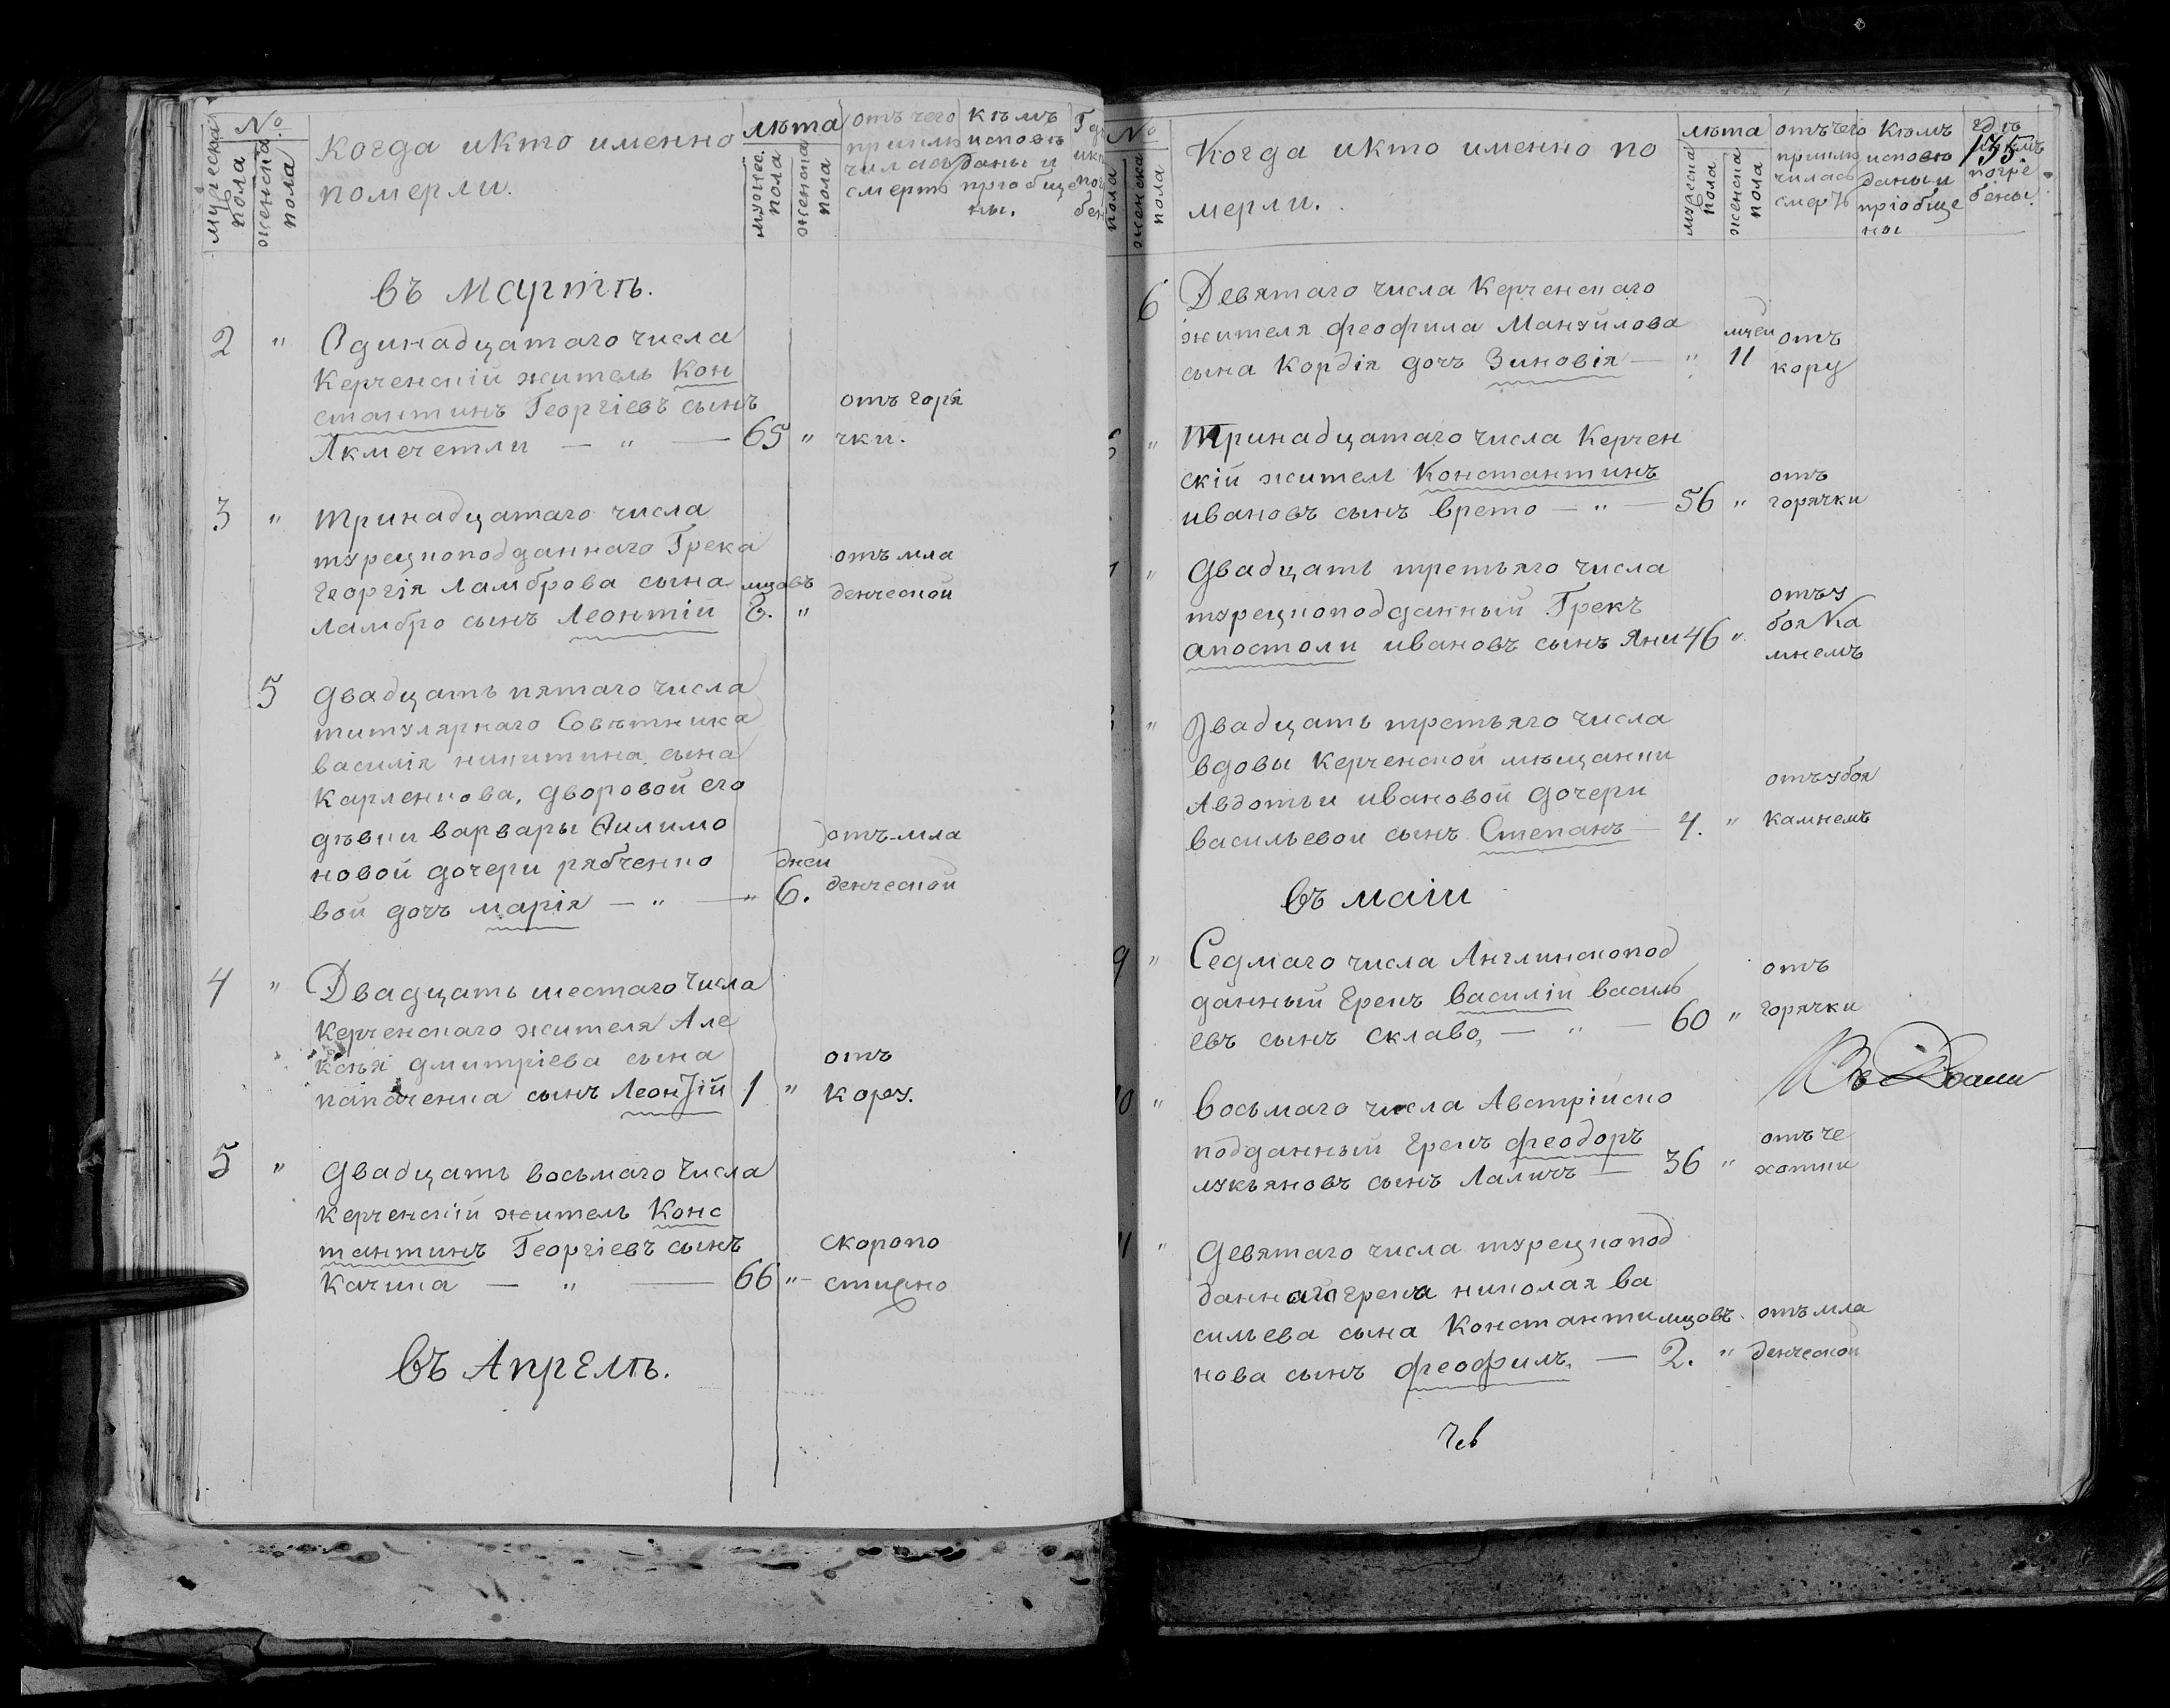 №
мужеска пола
женска пола
когда и кто именно
померли.
лѣта
мужес. пола
женска пола
отъ чего
приклю
чилась
смерть
кѣмъ
исповѣ
даны и
пріобще
ны.
въ мартѣ.
2 " Одинадцатаго числа
Керченскій житель Кон
стантинъ Георгіевъ сынъ
отъ горя
Акмечетли — " — 65 " чки.
3 " Тринадцатаго числа
турецкоподданнаго Грека
отъ мла
Георгія Ламброва сына мцовъ
денческой
Ламбро сынъ Леонтій 6. "
5 Двадцать пятаго числа
титулярнаго Совѣтника
василія никитина сына
Карленкова, дворовой его
дѣвки варвары Филимо
отъ мла
новой дочери рябченко
дней
вой дочъ марія — " — " 6. денческой
4 " Двадцать шестаго числа
Керченскаго жителя Але
ксѣя дмитріева сына
отъ
папаченка сынъ Леонтій 1 " кору.
5 " Двадцать восьмаго числа
Керченскій житель Конс
тантинъ Георгіевъ сынъ
скоропо
Качика — " — 66 " стижно
въ Апрелѣ.
№
пола
женска пола
Когда и кто именно по
мерли.
лѣта
мужеска пола
женска пола
отъ чего
приклю
чилась
смерть
Кѣмъ
исповѣ
даны и
пріобще
ны
гдѣ
и кѣмъ
погре
бены.
155.
6 Девятаго числа Керченскаго
жителя феофила Мануйлова
сына Кордія дочъ Зиновія — " 11
отъ
кору
" Тринадцатаго числа Керчен
скій жител Константинъ
отъ
ивановъ сынъ врето — " — 56 " горячки
" Двадцать третьяго числа
турецкоподданный Грекъ
апостоли ивановъ сынъ Яни 46 "
отъ у
боя ка
мнемъ
" Двадцать третьяго числа
вдовы Керченской мѣщанки
Авдотьи ивановой дочери
отъ убоя
васильевой сынъ Степанъ — 4. " камнемъ
въ маіи
9 " Седмаго числа Англинскопод
отъ
данный Грекъ василій василь
горячки
евъ сынъ склаво, — " — 60 "
10 " восьмаго числа Австрійско
подданный Грекъ феодоръ
отъ че
лукьяновъ сынъ Лаличъ — 36 " хотки
11 " Девятаго числа турецкопод
даннаго грека николая ва
сильева сына Константи мцовъ отъ мла
нова сынъ феофилъ, — 2. " денческой